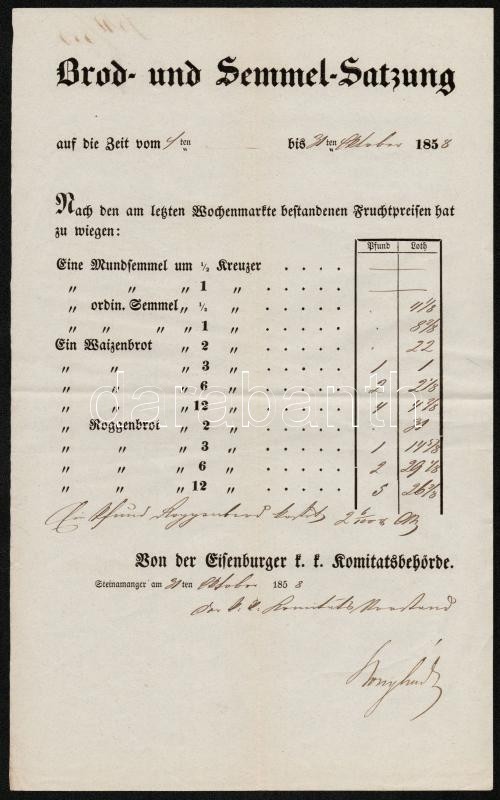 Brod- und Semmel-Satzung
auf die Zeit vom ten bis ten Oktober 1858
Nach den am letzten Wochenmarkte bestandenen Fruchtpreisen hat
zu wiegen:
Pfund Loth
Eine Mundsemmel um ½ Kreuzer . . . . — —
„ „ „ 1 „ . . . . — —
„ ordin. Semmel „ ½ „ . . . . 4 1/8
„ „ „ 1 „ . . . . 8 2/8
Ein Waizenbrot „ 2 „ . . . . 22
„ „ „ 3 „ . . . . 1 1
„ „ „ 6 „ . . . . 2 2 1/8
„ „ „ 12 „ . . . . 4 4 2/8
„ Roggenbrot „ 2 „ . . . .
„ „ „ 3 „ . . . . 1 14 5/8
„ „ „ 6 „ . . . . 2 29
„ „ „ 12 „ . . . . 5 26 2/8
Ein Pfund Roggenbrod kostet 2
Von der Eisenburger k. k. Komitatsbehörde.
Steinamanger am ten Oktober 1858
Der k. k. Komitats Vorstand
darabanth